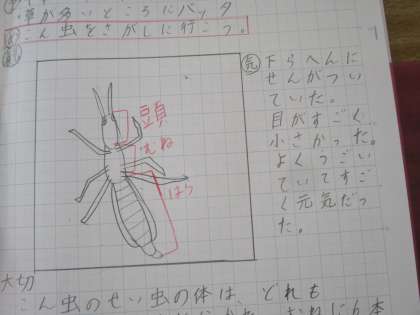 草が多いところにバッタ
こん虫をさがしに行こう。
気
下らへんに
せんがつい
ていた。
目がすごく
小さかった。
よくうごい
ていてすご
く元気だっ
た。
頭
むね
はら
大切
こん虫のせい虫の体は、どれも